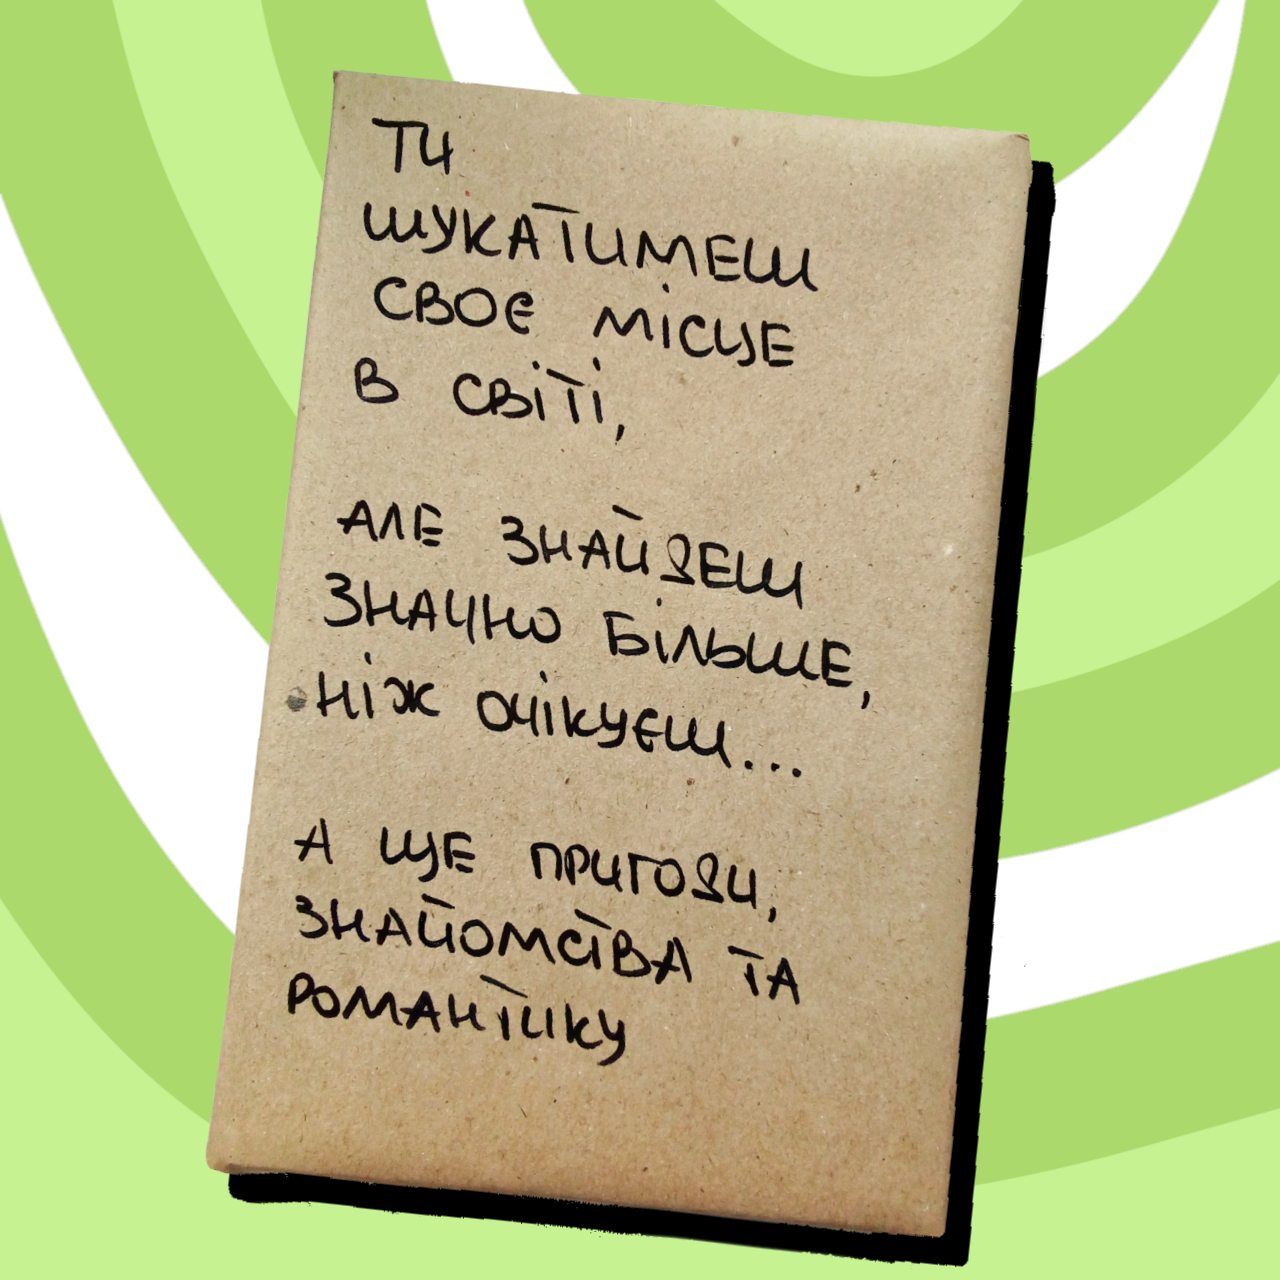 ТИ
ШУКАТИМЕШ
СВОЄ МІСЦЕ
В СВІТІ,
АЛЕ ЗНАЙДЕШ
ЗНАЧНО БІЛЬШЕ,
НІЖ ОЧІКУЄШ...
А ЩЕ ПРИГОДИ,
ЗНАЙОМСТВА ТА
РОМАНТИКУ